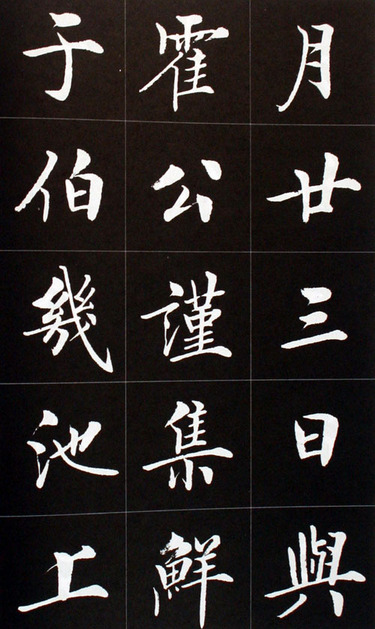 月廿三日與
霍公謹集鮮
于伯幾池上